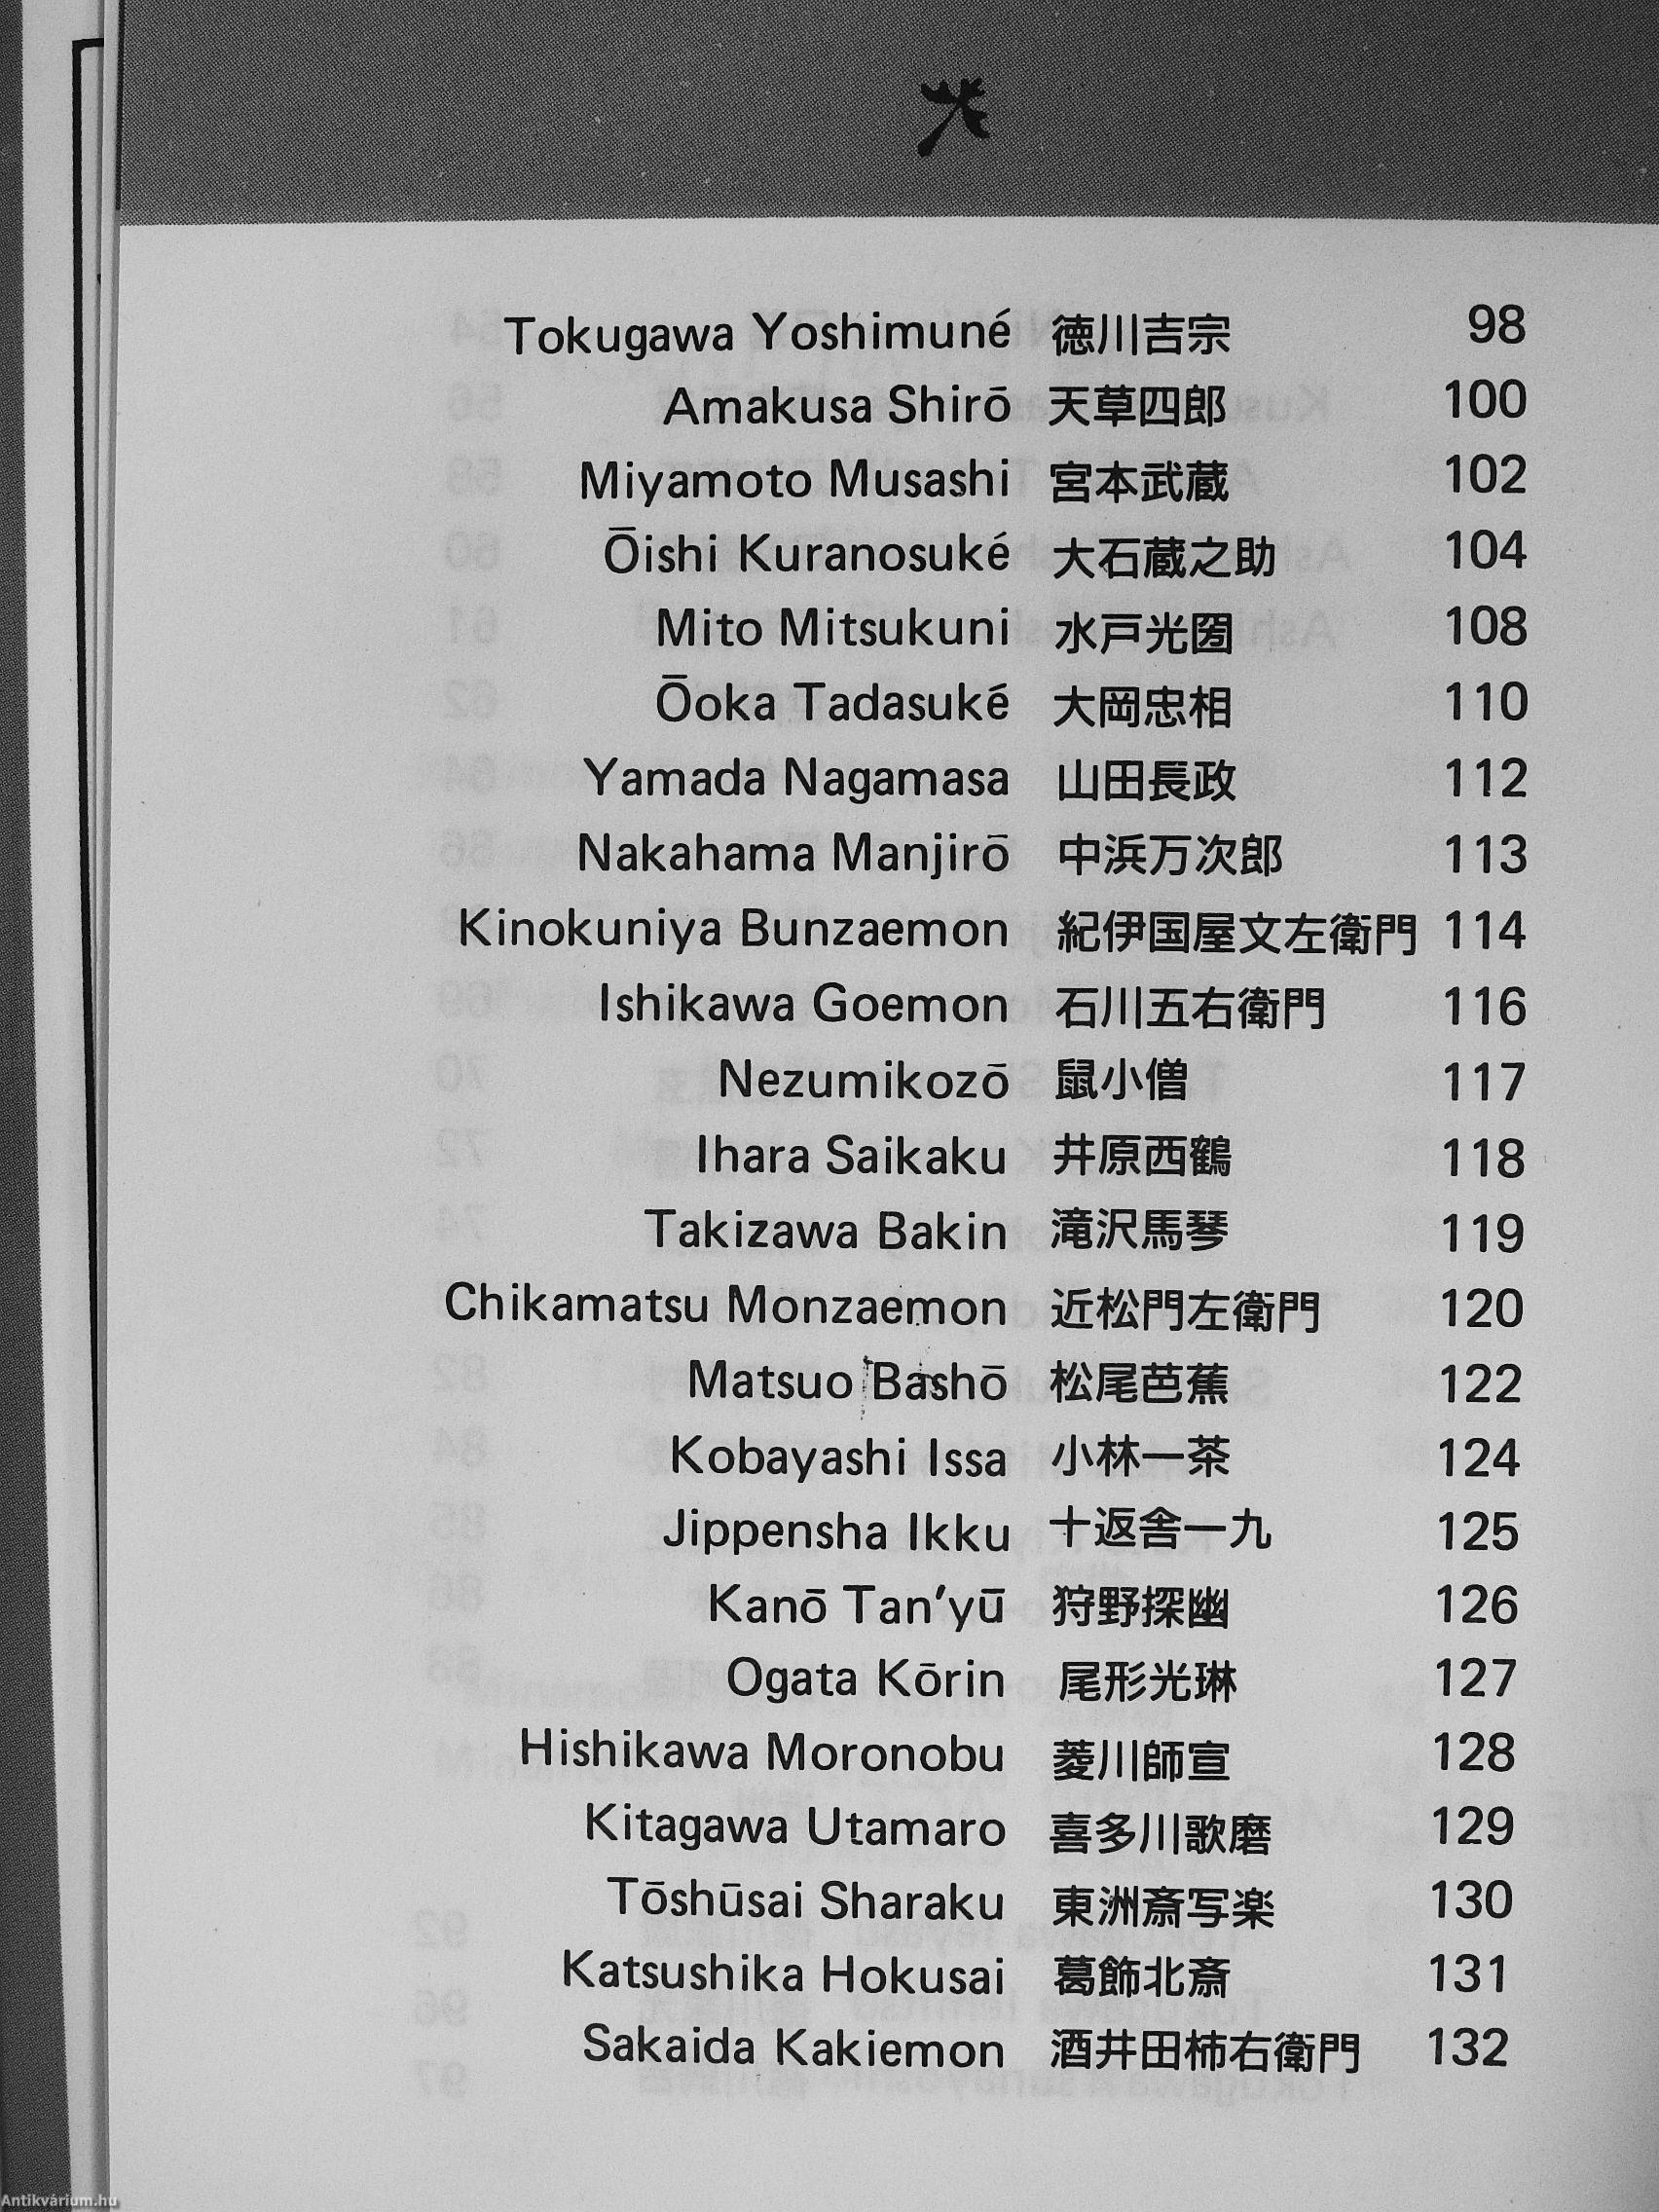 Tokugawa Yoshimuné 徳川吉宗 98
Amakusa Shirō 天草四郎 100
Miyamoto Musashi 宮本武蔵 102
Ōishi Kuranosuké 大石蔵之助 104
Mito Mitsukuni 水戸光圀 108
Ōoka Tadasuké 大岡忠相 110
Yamada Nagamasa 山田長政 112
Nakahama Manjirō 中浜万次郎 113
Kinokuniya Bunzaemon 紀伊国屋文左衛門 114
Ishikawa Goemon 石川五右衛門 116
Nezumikozō 鼠小僧 117
Ihara Saikaku 井原西鶴 118
Takizawa Bakin 滝沢馬琴 119
Chikamatsu Monzaemon 近松門左衛門 120
Matsuo Bashō 松尾芭蕉 122
Kobayashi Issa 小林一茶 124
Jippensha Ikku 十返舎一九 125
Kanō Tan'yū 狩野探幽 126
Ogata Kōrin 尾形光琳 127
Hishikawa Moronobu 菱川師宣 128
Kitagawa Utamaro 喜多川歌磨 129
Tōshūsai Sharaku 東洲斎写楽 130
Katsushika Hokusai 葛飾北斎 131
Sakaida Kakiemon 酒井田柿右衛門 132
Antikvárium.hu